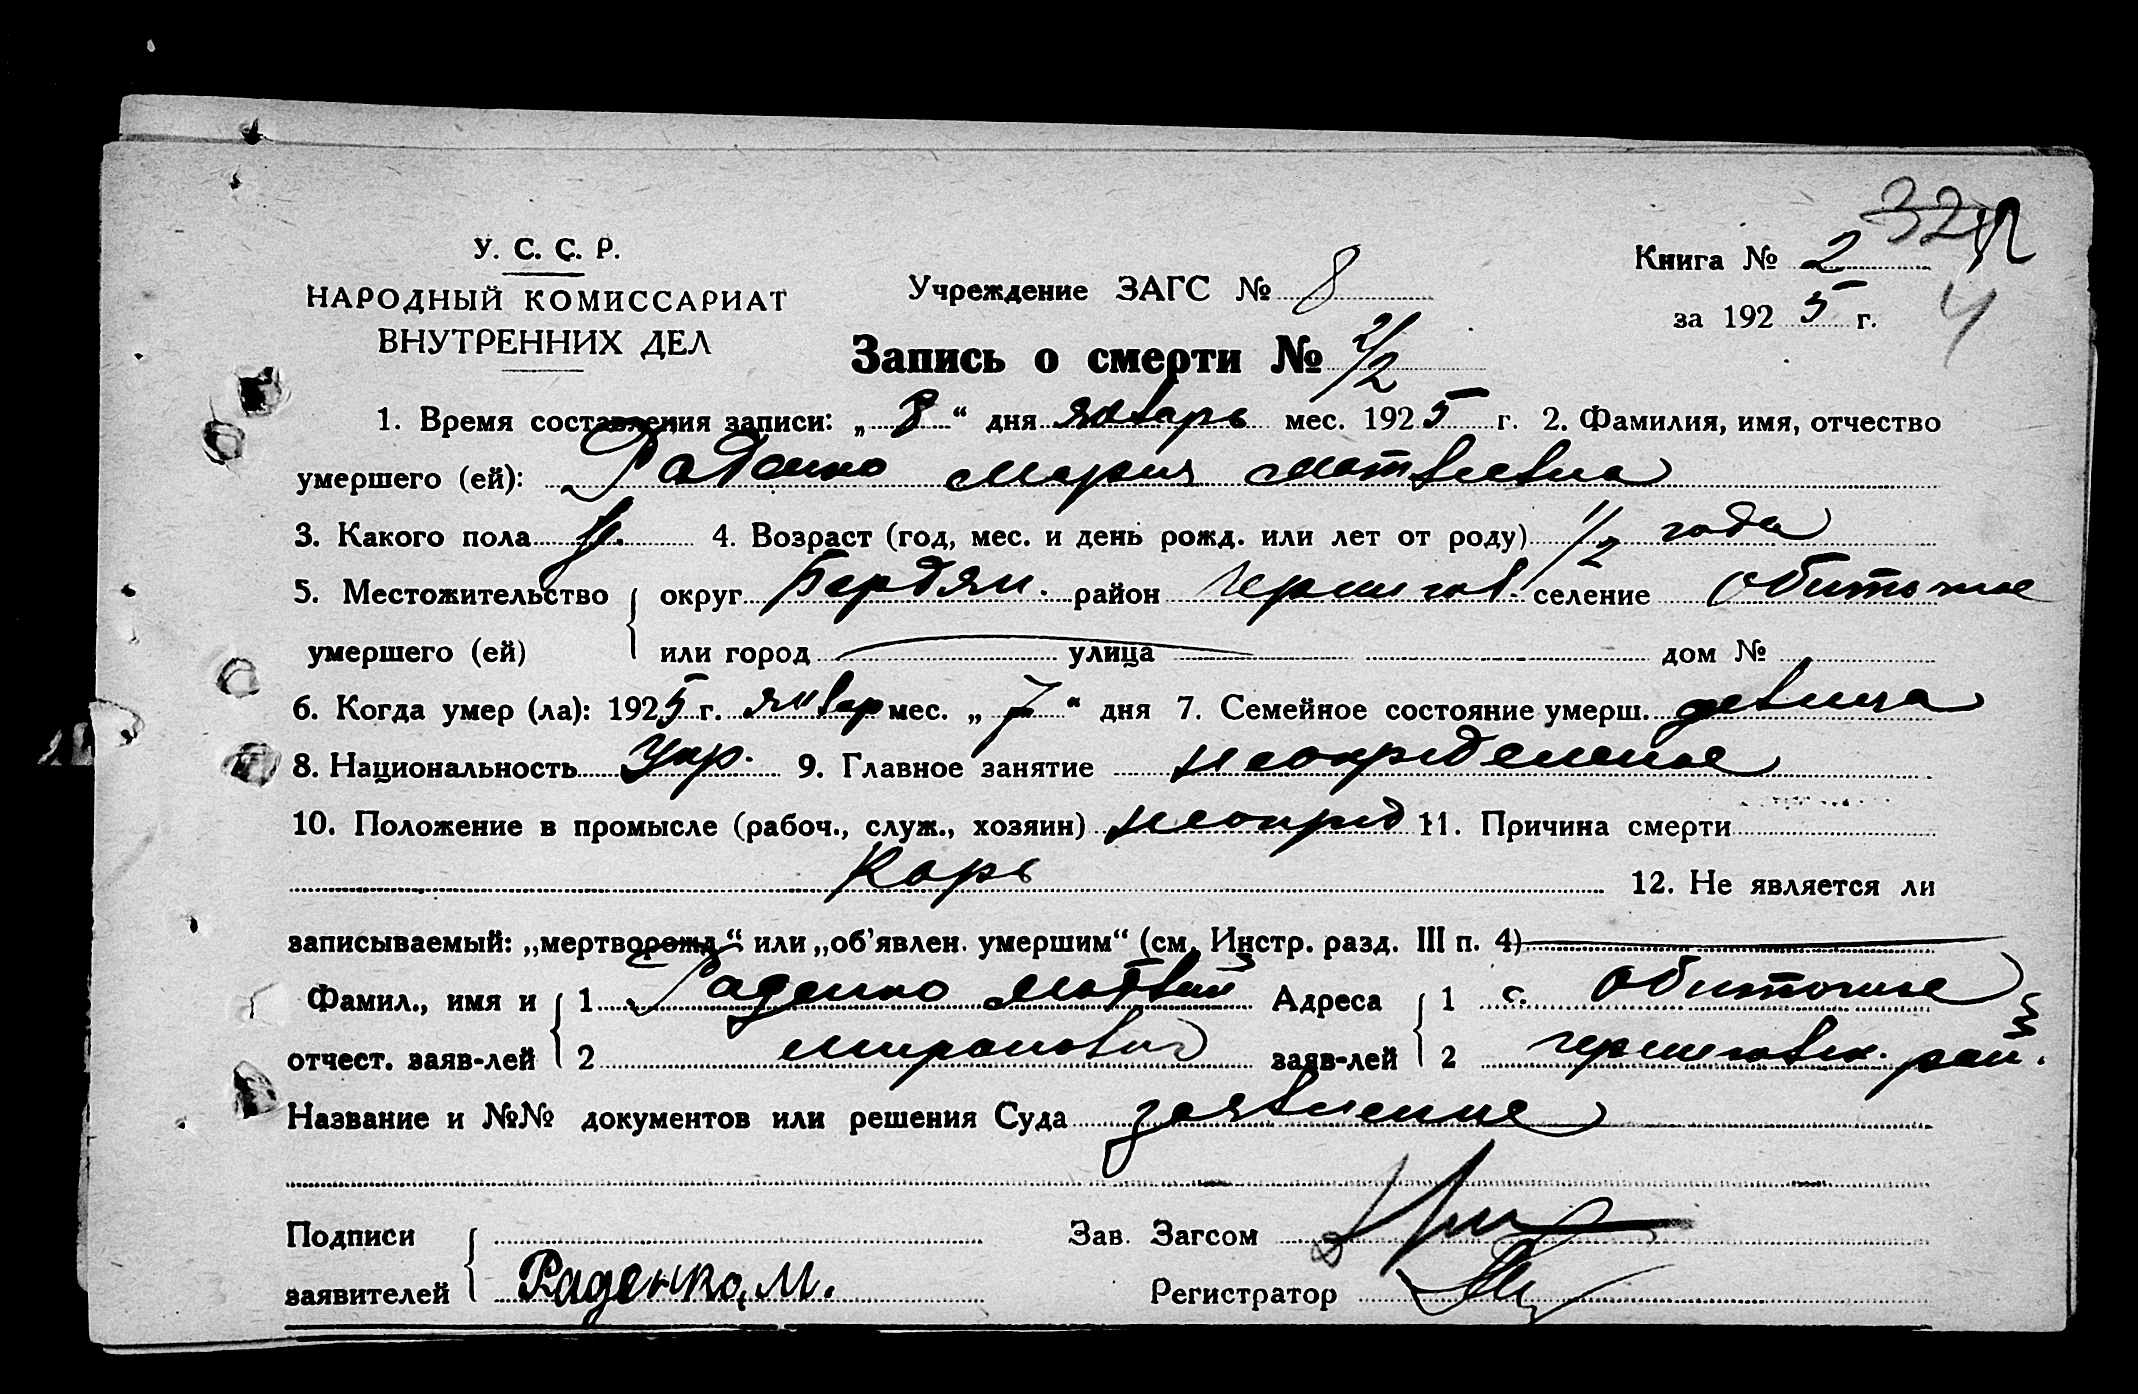 У. С. С. Р.
НАРОДНЫЙ КОМИССАРИАТ
ВНУТРЕННИХ ДЕЛ
Учреждение ЗАГС № 8
Книга № 2
за 1925 г.
32
4
Запись о смерти № 2/2
1. Время составления записи: „8“ дня январь мес. 1925 г. 2. Фамилия, имя, отчество
умершего (ей): Раденко Мария Матвеевна
3. Какого пола ж. 4. Возраст (год, мес. и день рожд. или лет от роду) 1/2 года
5. Местожительство умершего (ей) { округ Бердян. район Чернигов. селение Обиточное
или город улица дом №
6. Когда умер (ла): 1925 г. январ мес. „7“ дня 7. Семейное состояние умерш. девица
8. Национальность Укр. 9. Главное занятие неопределеное
10. Положение в промысле (рабоч., служ., хозяин) неопред 11. Причина смерти
Корь 12. Не является ли
записываемый: „мертворожд.“ или „об'явлен. умершим“ (см. Инстр. разд. III п. 4)
Фамил., имя и { 1 Раденко Матвей Адреса { 1 с. Обиточное
отчест. заяв-лей 2 Миронович заяв-лей 2 Черниговск. рай.
Название и №№ документов или решения Суда заявление
Подписи Зав. Загсом
заявителей Раденко, М. Регистратор